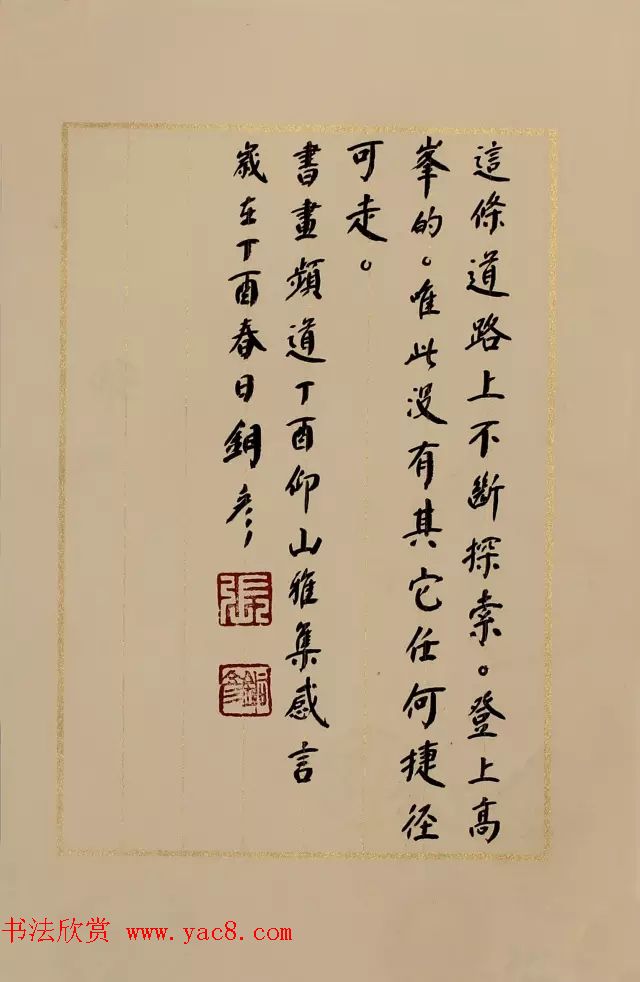 這條道路上不斷探索。登上高
峯的。唯此没有其它任何捷径
可走。
書畫頻道丁酉仰山雅集感言
歲在丁酉春日銅彦
張
銅彦
书法欣赏 www.yac8.com